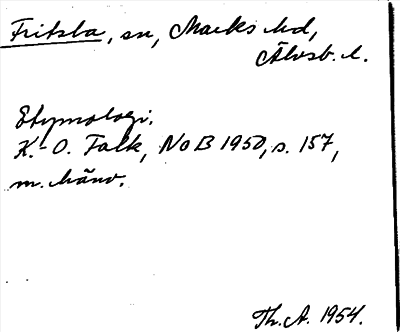 Fritsla, sn, Marks hd,
Älvsb. l.
Etymologi.
K.-O. Falk, NoB 1950, s. 157,
m. hänv.
Th. A. 1954.